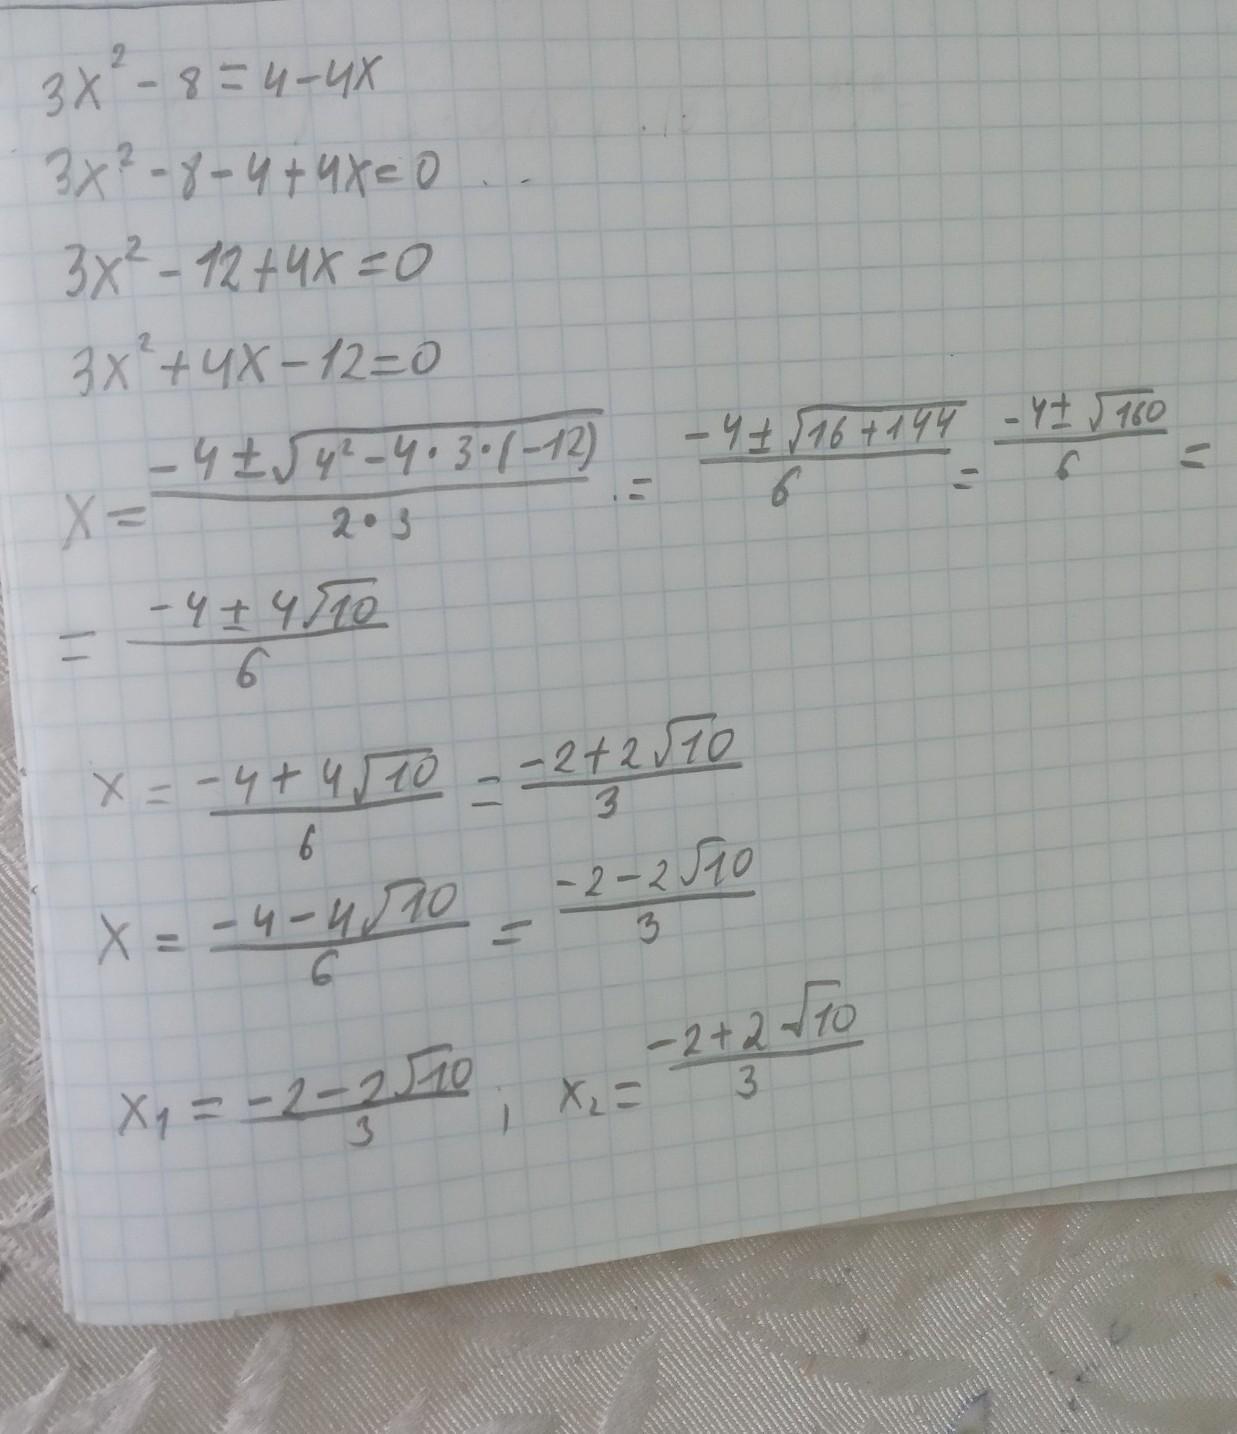 3x² - 8 = 4 - 4x
3x² - 8 - 4 + 4x = 0
3x² - 12 + 4x = 0
3x² + 4x - 12 = 0
x = (-4 ± √(4² - 4·3·(-12)))/(2·3) = (-4 ± √(16 + 144))/6 = (-4 ± √160)/6 =
= (-4 ± 4√10)/6
x = (-4 + 4√10)/6 = (-2 + 2√10)/3
x = (-4 - 4√10)/6 = (-2 - 2√10)/3
x₁ = (-2 - 2√10)/3 ; x₂ = (-2 + 2√10)/3